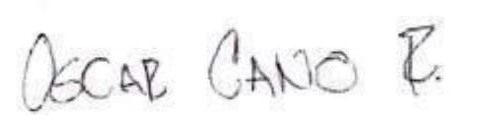 OSCAR CANO R.